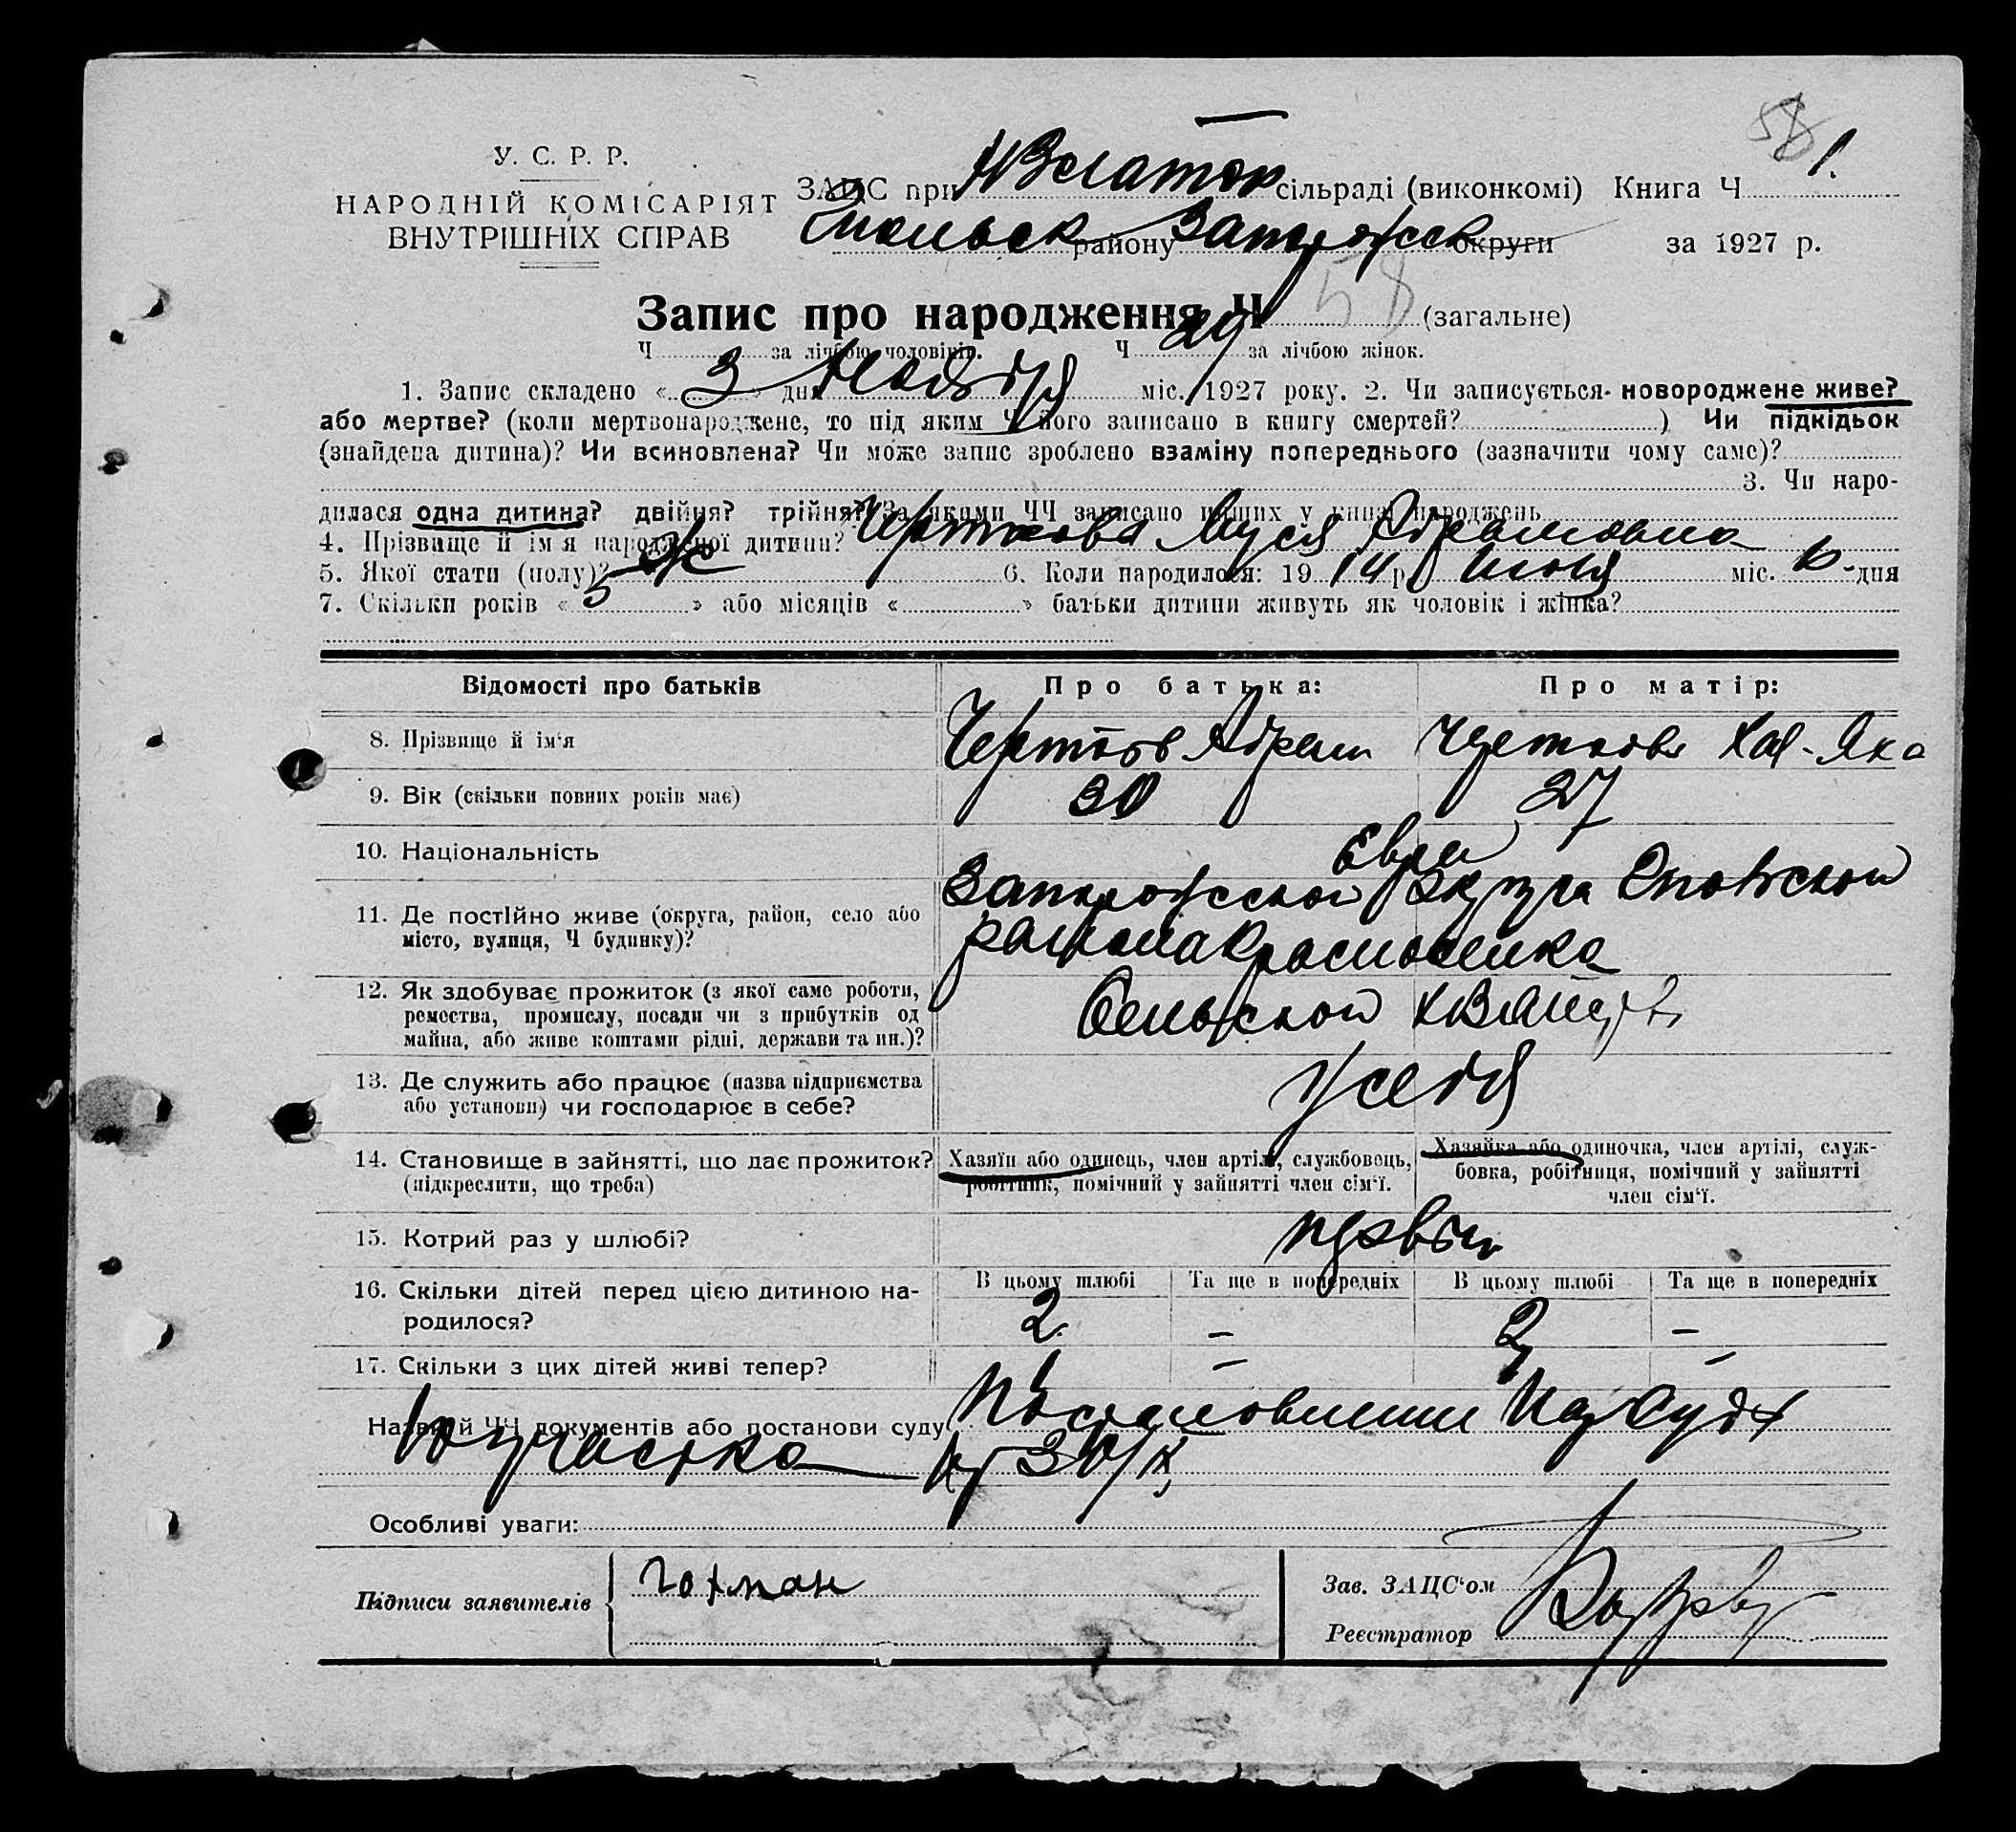 58
У. С. Р. Р.
НАРОДНІЙ КОМІСАРІЯТ
ВНУТРІШНІХ СПРАВ
ЗАЦС при сільраді (виконкомі) Книга Ч 1.
району Запорожск округи за 1927 р.
Запис про народження Ч 58 (загальне)
Ч за лічбою чоловіків. Ч 29 за лічбою жінок.
1. Запис складено « 3 » дня Ноября міс. 1927 року. 2. Чи записується новороджене живе?
або мертве? (коли мертвонароджене, то під яким Ч його записано в книгу смертей? ) Чи підкідьок
(знайдена дитина)? Чи всиновлена? Чи може запис зроблено взаміну попереднього (зазначити чому саме)?
3. Чи наро-
дилася одна дитина? двійня? трійня? За якими ЧЧ записано инших у книзі народжень
4. Прізвище й ім'я народженої дитини? Черткова Муся Абрамовна
5. Якої стати (полу)? ж 6. Коли народилося: 19 14 р. июля міс. 10 дня
7. Скільки років « 5 » або місяців « » батьки дитини живуть як чоловік і жінка?
Відомості про батьків Про батька: Про матір:
8. Прізвище й ім'я Чертков Абрам Черткова Хая-
9. Вік (скільки повних років має) 30 27
10. Національність Евреи
11. Де постійно живе (округа, район, село або
місто, вулиця, Ч будинку)?
Запорожской
района Красноселка
12. Як здобуває прожиток (з якої саме роботи,
ремества, промислу, посади чи з прибутків од
майна, або живе коштами рідні, держави та ин.)?
Сельской
13. Де служить або працює (назва підприємства
або установи) чи господарює в себе?
у себя
14. Становище в зайнятті, що дає прожиток?
(підкреслити, що треба)
Хазяїн або одинець, член артілі, службовець,
робітник, помічний у зайнятті член сім'ї.
Хазяйка або одиночка, член артілі, служ-
бовка, робітниця, помічний у зайнятті
член сім'ї.
15. Котрий раз у шлюбі? первый
16. Скільки дітей перед цією дитиною на-
родилося?
В цьому шлюбі Та ще в попередніх В цьому шлюбі Та ще в попередніх
2 – 2 –
17. Скільки з цих дітей живі тепер? – –
Назви й ЧЧ документів або постанови суду Постановление Нар Суда
10 участка
Особливі уваги:
Підписи заявителів
Зав. ЗАЦС'ом
Реєстратор